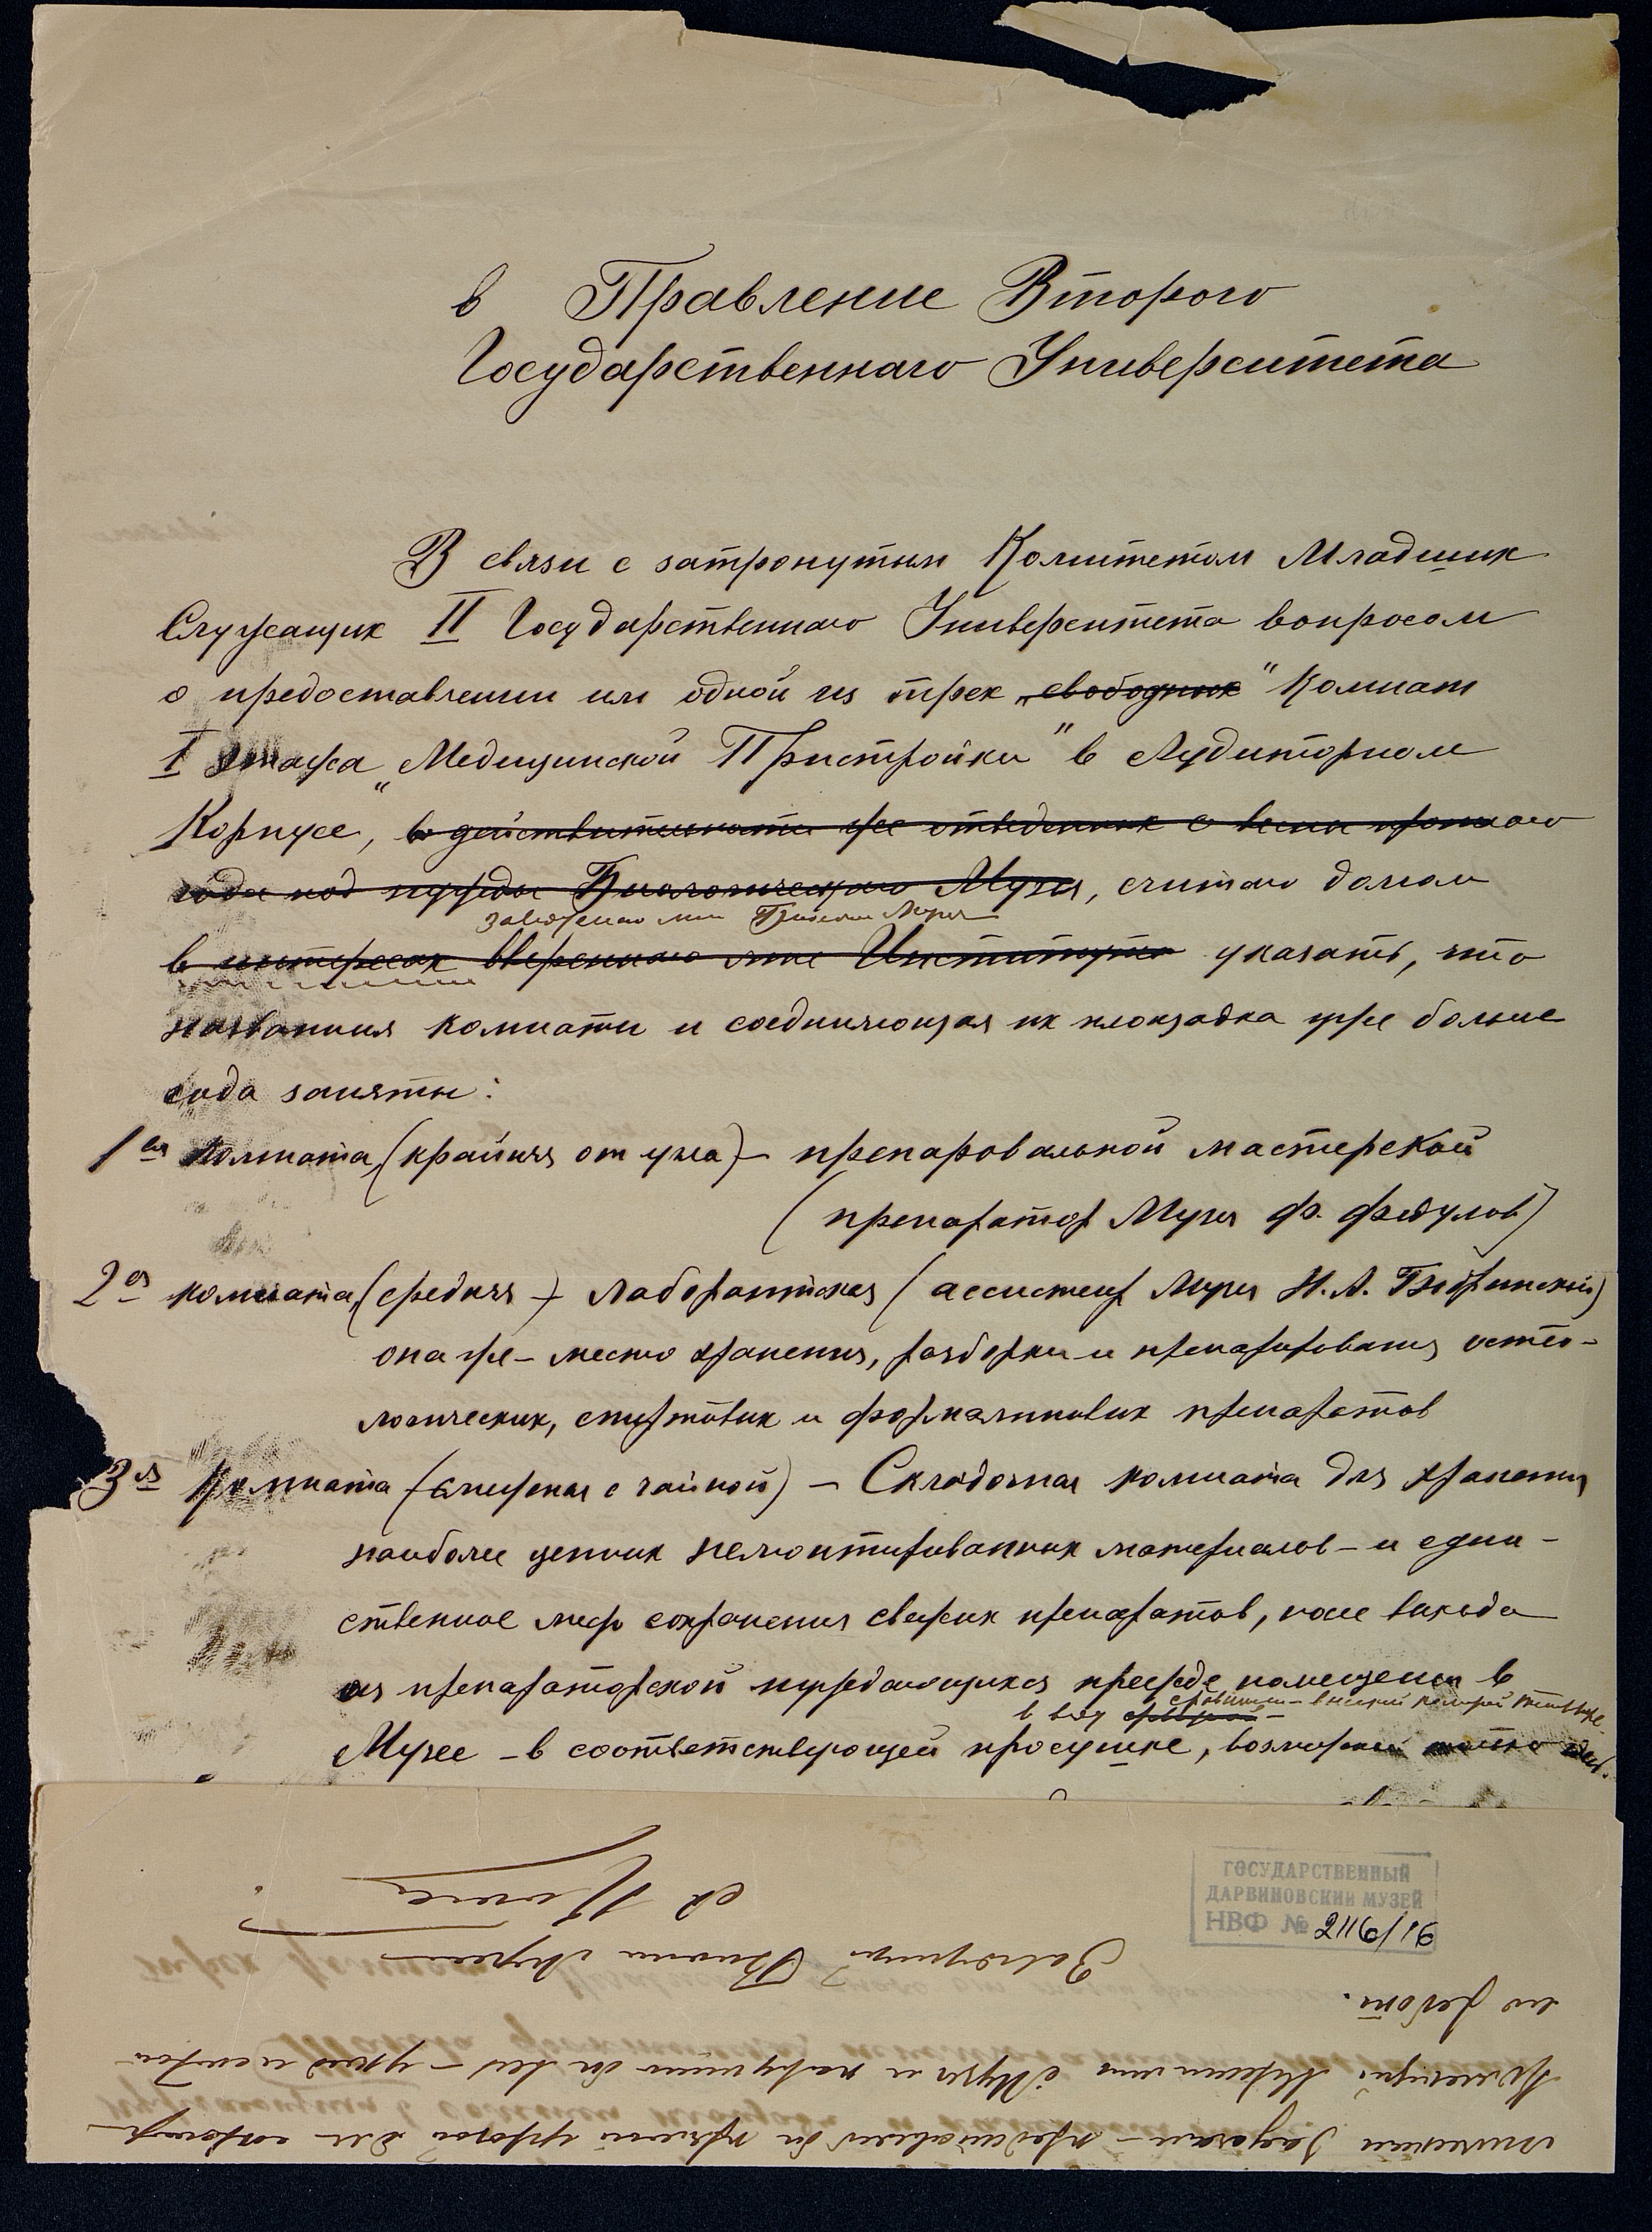 в Правление Второго
Государственнаго Университета
В связи с затронутым Комитетом Младших
Служащих II Государственнаго Университета вопросом
о предоставлении им одной из трех „свободных" комнат
I этажа „Медицинской Пристройки" в Аудиторном
Корпусе, в действительности же отведенных с весны прошлаго
года под нужды Биологическаго Музея, считаю долгом
Музея
в интересах ввереннаго мне Института указать, что
названныя комнаты и соединяющая их площадка уже больше
года заняты:
1ая комната (крайняя от угла) – препаровальной мастерской
(препаратор Музея Ф. Федулов)
2ая комната (средняя) – лаборантская (ассистент Музея Н. А. Бобринский)
она же – место хранения, разборки и препарирования остео-
логических, спиртовых и формалиновых препаратов
3я Комната (смежная с чайной) – Складочная комната для хранения
наиболее ценных немонтированных материалов – и един-
ственное место сохранения свежих препаратов, после выхода
из препараторской нуждающихся прежде помещения в
в виду
Музее – в соответствующей просушке, возможной только здесь.
ГОСУДАРСТВЕННЫЙ
ДАРВИНОВСКИЙ МУЗЕЙ
НВФ № 2116/16
задачам – представляет бы прямой угрозой для
Музея и нарушило бы
работ.
Заведующий Музеем